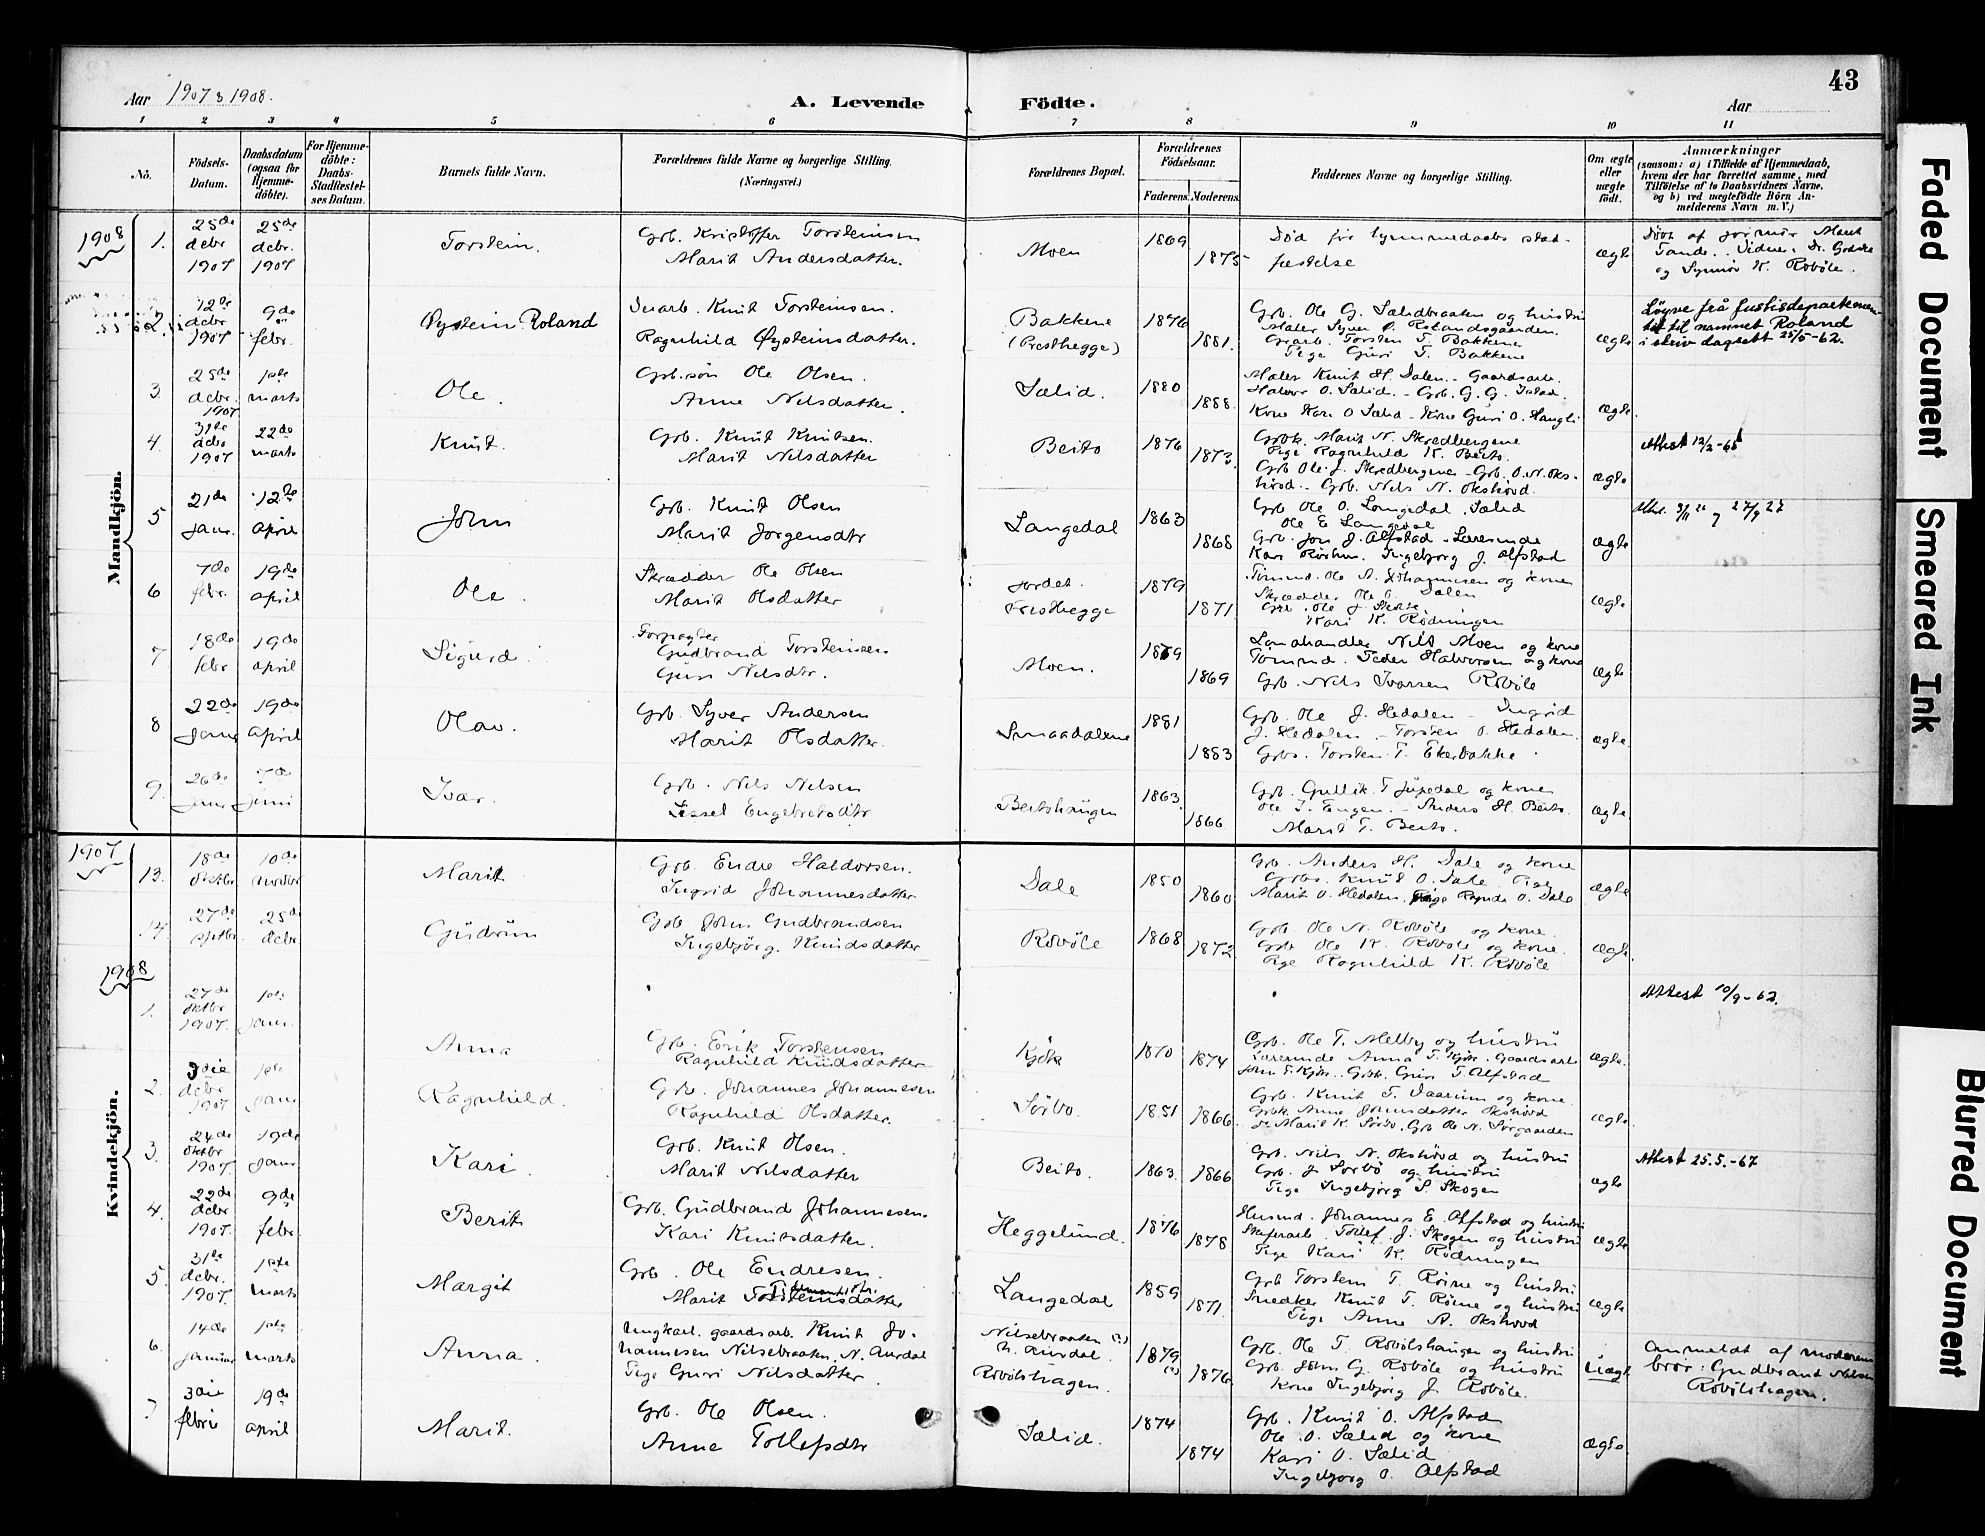 43
Aar 1907 & 1908.
A. Levende Födte.
Aar
1 2 3 4 5 6 7 8 9 10 11
No.
Födsels-Datum.
Daabsdatum (ogsaa for Hjemme-döbte).
For Hjemme-döbte: Daabs-Stadfæstel-ses Datum.
Barnets fulde Navn.
Forældrenes fulde Navne og borgerlige Stilling. (Næringsvei.)
Forældrenes Bopæl.
Forældrenes Födselsaar.
Faderens. Moderens.
Faddernes Navne og borgerlige Stilling.
Om ægte eller uægte födt.
Anmærkninger (saasom: a) i Tilfælde af Hjemmedaab, hvem der har forrettet samme, med Tilföielse af to Daabsvidners Navne, og b) ved uægtefödte Börn An-melderens Navn m. V.)
Mandkjön.
1908
1. 25de decbr 1907 25de decbr. 1907 Torstein. Grb. Kristoffer Torsteinsen Marit Andersdatter. Moen 1869 1875 Död før hjemmedaabs stad-festelse ægte Døbt af jormor Marit
og Synnør K. Robøle.
2. 12te decbr 1907 9de febr. Øystein Roland Knut Torsteinsen. Ragnhild Øysteinsdatter. Bakkene (Presthegge) 1876 1881. Grb. Ole G. Sælidbraaten og hustru
Maler Syver Ø. Rolandsgaarden.
Torsten T. Bakkene
Pige Guri T. Bakkene
ægte Løyve frå Justisdepartemen-tet til namnet Roland i skriv dagsett 25/5-62.
3. 25de decbr. 1907 1ste marts Ole. Grb.søn Ole Olsen. Anne Nilsdatter. Sælid. 1880 1888. Maler Knut H. Dalen. - Gaardsarb.
Halvor O. Sælid. - Grb. G. G.
Kone Kari O. Sælid - Kone Guri O. Haugli
ægte.
4 31te decbr 1907 22de marts Knut. Grb. Knut Knutsen. Marit Nilsdatter Beito 1876 1873. Grbk. Marit N. Skredbergene
Pige Ragnhild K. Beito.
Grb Ole J. Skredbergene - Grb. O. N. Oks-
hovd. - Grb. Nils N. Okshovd.
ægte Attest 12/2-65
5 21de Janr. 12te April John Grb. Knut Olsen Marit Jorgensdtr Langedal 1863 1868 Grb Ole O. Langedal, Sælid
Ole E Langedal
Grb. Jon J. Alfstad - Lærerinde
Kari Ingebjorg J. Alfstad
ægte 27/9 27
6 7de febr. 19de april Ole. Skrædder Ole Olsen Marit Olsdatter Jordet. Presthegge 1879 1871. Tømmd. Ole A. Johannesen og kone
Skrædder Ole O. Dalen
Grb. Ole J.
Kari K. Rødningen
ægte
7 18de febr 19de april Sigurd. Forpagter Gudbrand Torsteinsen Guri Nilsdtr. Moen. 1869 Landhandler Nils Moen og kone
Tømmd. Peder Halvorsen og kone
Grb. Nils Ivarsen Robøle
ægte
8 22de Janr 19de April Olav. Grb. Syver Andersen Marit Olsdatter. Smaadalene 1881 1883 Grb. Ole J. Hedalen - Ingrid
J. Hedalen - Torsten O. Hedalen.
Grbs. Torsten T. Ekerbakke.
ægte.
9. 26de Janr 7de Juni Ivar. Grb. Nils Nilsen Sissel Engebretsdtr Beitohaugen 1863. 1866 Grb. Gullik T Jupedal og kone
Ole T. Engen. - Anders H. Beito.
Marit T. Beito.
ægte.
Kvindekjön.
1907
13. 18de oktbr 10de novbr Marit Grb. Endre Haldorsen. Ingrid Johannesdatter Dale 1850 1860 Grb. Anders H. Dale og kone
Grbs. Knut O. Dale. Pige
Marit O. Hedalen. Pige O. Dale
ægte
14. 27de 25de decbr. Gudrun Grb John Gudbrandsen Ingebjörg Knudsdatter Robøle 1868 1872 Grb. Ole N. Robøle og kone
Grb. Ole K. Robøle og kone
Pige Ragnhild K. Robøle
ægte.
1908
1. 27de oktbr 1907. 1ste Janr. Anna Grb. Erik Torstensen Ragnhild Knudsdatter Kjøk 1870 1874 Grb. Ole T. Melby og hustru
Lærerinde Anna T. Kjøk. Gaardsarb.
John T. Kjøk. Grbk. Guri T. Alfstad
ægte. Attest 10/9-62.
2. 3die decbr 1907 1ste Janr Ragnhild. Grb. Johannes Johannesen Ragnhild Olsdatter. Sørbo. 1851 1866 Grb. Knut T. og kone.
Grbk. Anne Johnsdatter Okshovd
Marit K. Sørbo, Grb Ole N. Sørgaarden
ægte.
3. 24de oktbr 1907. 19de Janr Kari. Grb. Knut Olsen. Marit Nilsdatter Beito. 1863 1866 Grb. Nils N. Okshovd og hustru
Grb. J Sørbo og hustru
Pige Ingebjørg S. Skogen
ægte Attest 25.5.-67
4. 22de decbr 1907. 9de febr. Berit Grb. Gudbrand Johannesen. Kari Knutsdatter. Heggelund. 1876 1878 Husmd. Johannes E. Alfstad og hustru
Skiferarb. Tollef J. Skogen og hustru
Pige Kari K. Rødningen
ægte
5. 31te decbr. 1907. 1ste marts Margit Grb. Ole Endresen. Marit Torsteinsdatter Langedal 1859 1871 Grb Torstein T. Røine og hustru
Snedker Knut T. Røine og hustru
Pige Anne A. Okshovd
ægte
6. 14de Januar 1ste marts Anna. Ungkarl. gaardsarb. Knut Jo-hannesen Nilsebraaten, N. Aurdal Pige Guri Nilsdatter. Nilsebraaten N. Aurdal. Robølshagen. 1879 1876 Grb. Ole T. Robølshaugen og hustru
Grb. John G. Robøle og hustru
Kone Ingebjorg J. Robøle.
Uægte anmeldt af moderens bror: Gudbrand Nilsen Robølshagen.
7 3die febru 19de april Marit. Grb. Ole Olsen. Anne Tollefsdtr Sælid. 1874 1874 Grb. Knut O. Alfstad
Ole O. Sælid og kone
Kari O. Sælid
Ingebjorg O. Alfstad
ægte.
Faded Document
Smeared Ink
Blurred Document